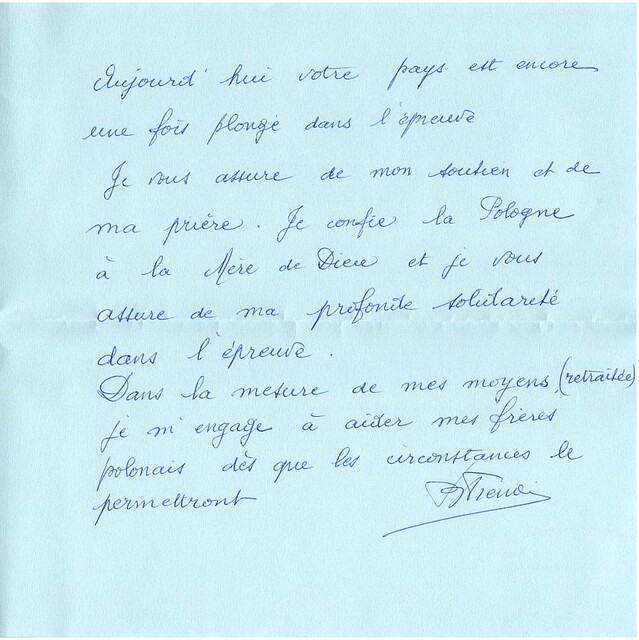 Aujourd'hui votre pays est encore
une fois plongé dans l'épreuve
Je vous assure de mon soutien et de
ma prière. Je confie la Pologne
à la Mère de Dieu et je vous
assure de ma profonde solidareté
dans l'épreuve.
Dans la mesure de mes moyens (retraitée)
je m'engage à aider mes frères
polonais dès que les circonstances le
permettront